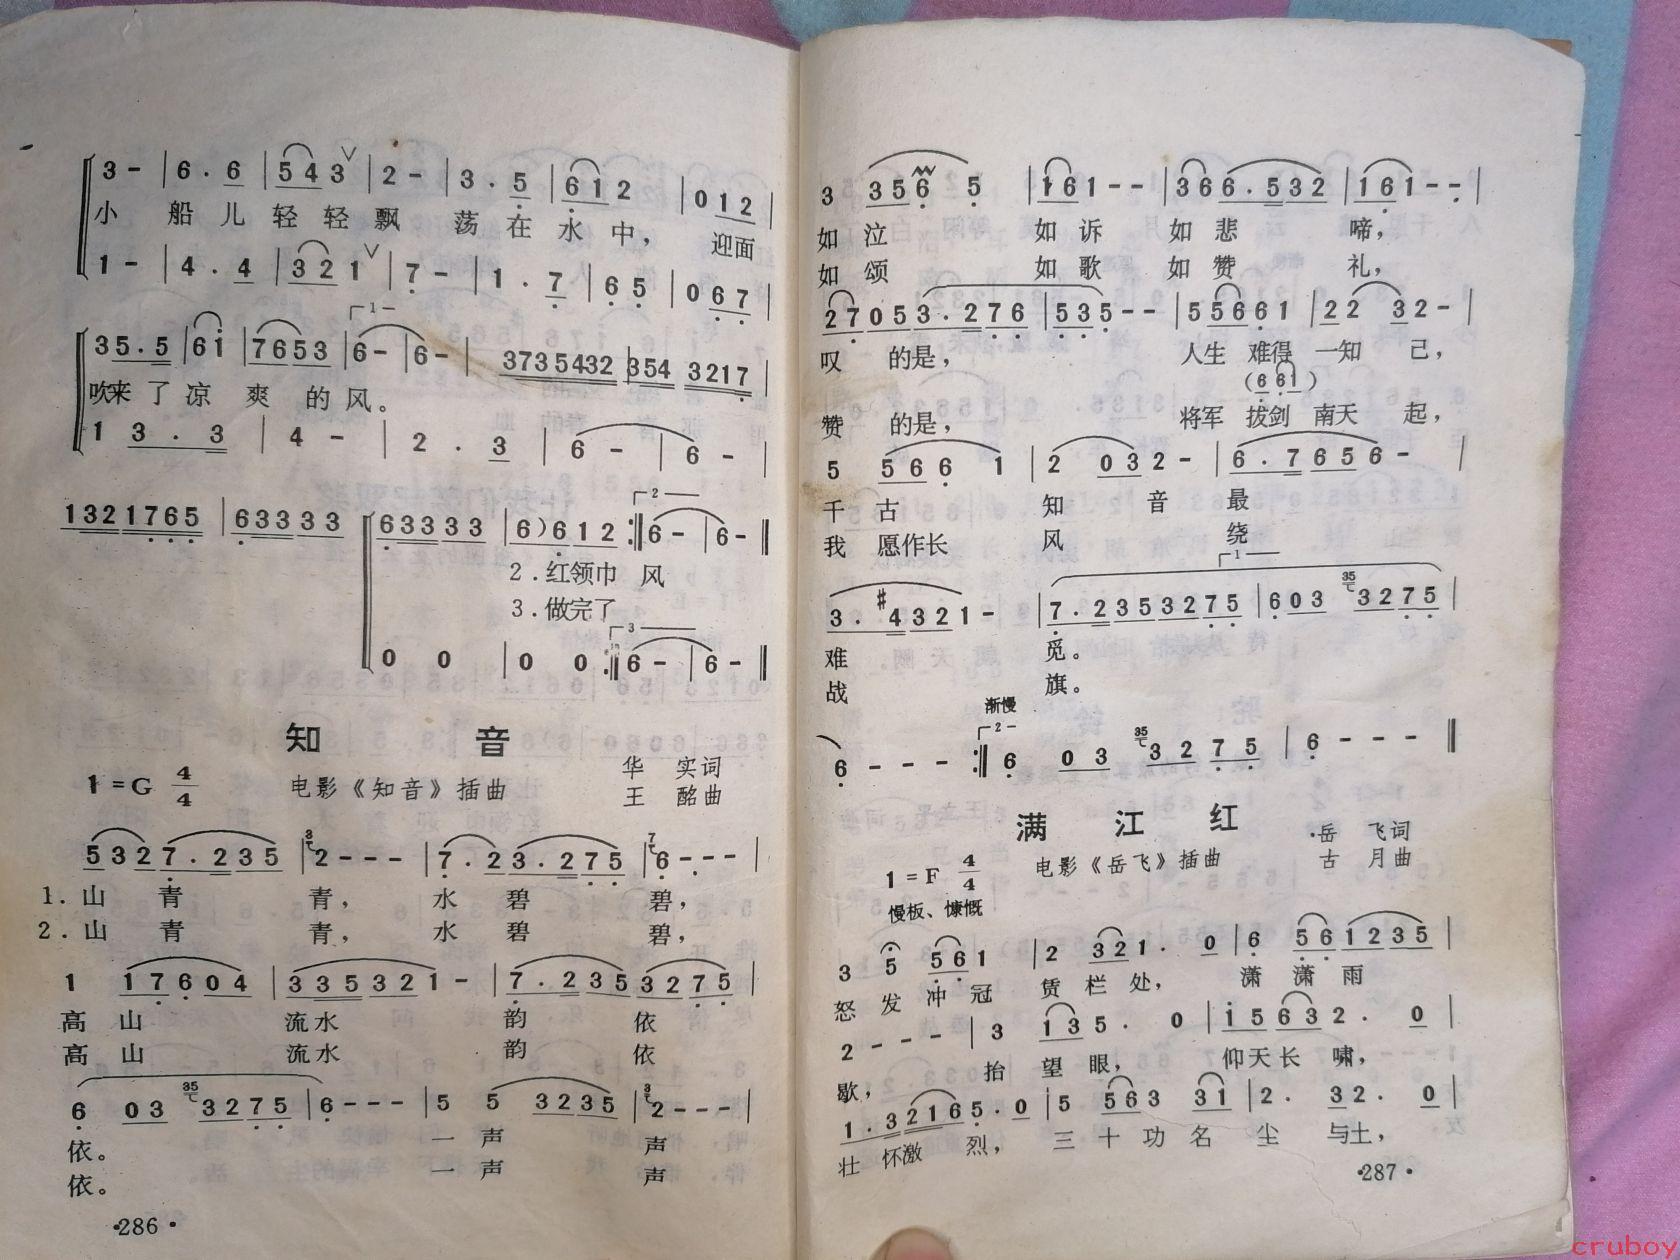 3 - | 6 . 6 | 5 4 3 | 2 - | 3 . 5 | 6 1 2 | 0 1 2 |
小 船 儿 轻 轻 飘 荡 在 水 中， 迎面
1 - | 4 . 4 | 3 2 1 | 7 - | 1 . 7 | 6 5 | 0 6 7 |
1
3 5 . 5 | 6 i | 7 6 5 3 | 6 - | 6 - | 3735432 | 354 3217 |
吹来 了 凉 爽 的 风。
1 3 . 3 | 4 - | 2 . 3 | 6 - | 6 - |
2
132 1765 | 63333 | 63333 | 6) 6 1 2 :‖ 6 - | 6 - ‖
2．红领巾 风
3．做完了
3
0 0 | 0 0 :‖ 6 - | 6 - ‖
知 音
1=G 4/4 电影《知音》插曲
华 实词
王 酩曲
5 3 2 7 . 2 3 5 | 3 2 - - - | 7 . 2 3 . 2 7 5 | 7 6 - - - |
1．山 青 青， 水 碧 碧，
2．山 青 青， 水 碧 碧，
1 1 7 6 0 4 | 3 3 5 3 2 1 - | 7 . 2 3 5 3 2 7 5 |
高 山 流水 韵 依
高 山 流水 韵 依
6 0 3 35 3 2 7 5 | 6 - - - | 5 5 3 2 3 5 | 3 2 - - - |
依。 一 声 声
依。 一 声 声
·286·
3 3 5 6 5 | 1 6 1 - - | 3 6 6 . 5 3 2 | 1 6 1 - - |
如 泣 如 诉 如 悲 啼，
如 颂 如 歌 如 赞 礼，
2 7 0 5 3 . 2 7 6 | 5 3 5 - - | 5 5 6 6 1 | 2 2 3 2 - |
叹 的是， 人生 难得 一知 己，
(6 6 i)
赞 的是， 将军 拔剑 南天 起，
5 5 6 6 1 | 2 0 3 2 - | 6 . 7 6 5 6 - |
千 古 知 音 最
我 愿作长 风 绕
1
3 . #4 3 2 1 - | 7 . 2 3 5 3 2 7 5 | 6 0 3 35 3 2 7 5 |
难 觅。
战 旗。
渐慢
2
6 - - - :‖ 6 0 3 35 3 2 7 5 | 6 - - - ‖
满 江 红
1=F 4/4 电影《岳飞》插曲
岳 飞词
古 月曲
慢板、慷慨
3 5 5 6 1 | 2 3 2 1 . 0 | 6 5 6 1 2 3 5 |
怒 发 冲 冠 凭 栏 处， 潇 潇 雨
2 - - - | 3 1 3 5 . 0 | i 5 6 3 2 . 0 |
歇， 抬 望 眼， 仰天 长 啸，
1 . 3 2 1 6 5 . 0 | 5 5 6 3 3 1 | 2 . 3 2 . 0 |
壮 怀激 烈， 三 十 功 名 尘 与土，
·287·
cruboy